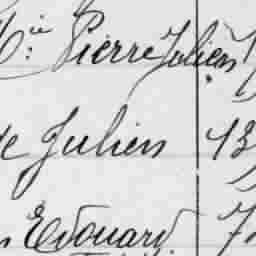 Cie Pierre Julien
de Julien 13
Edouard 7